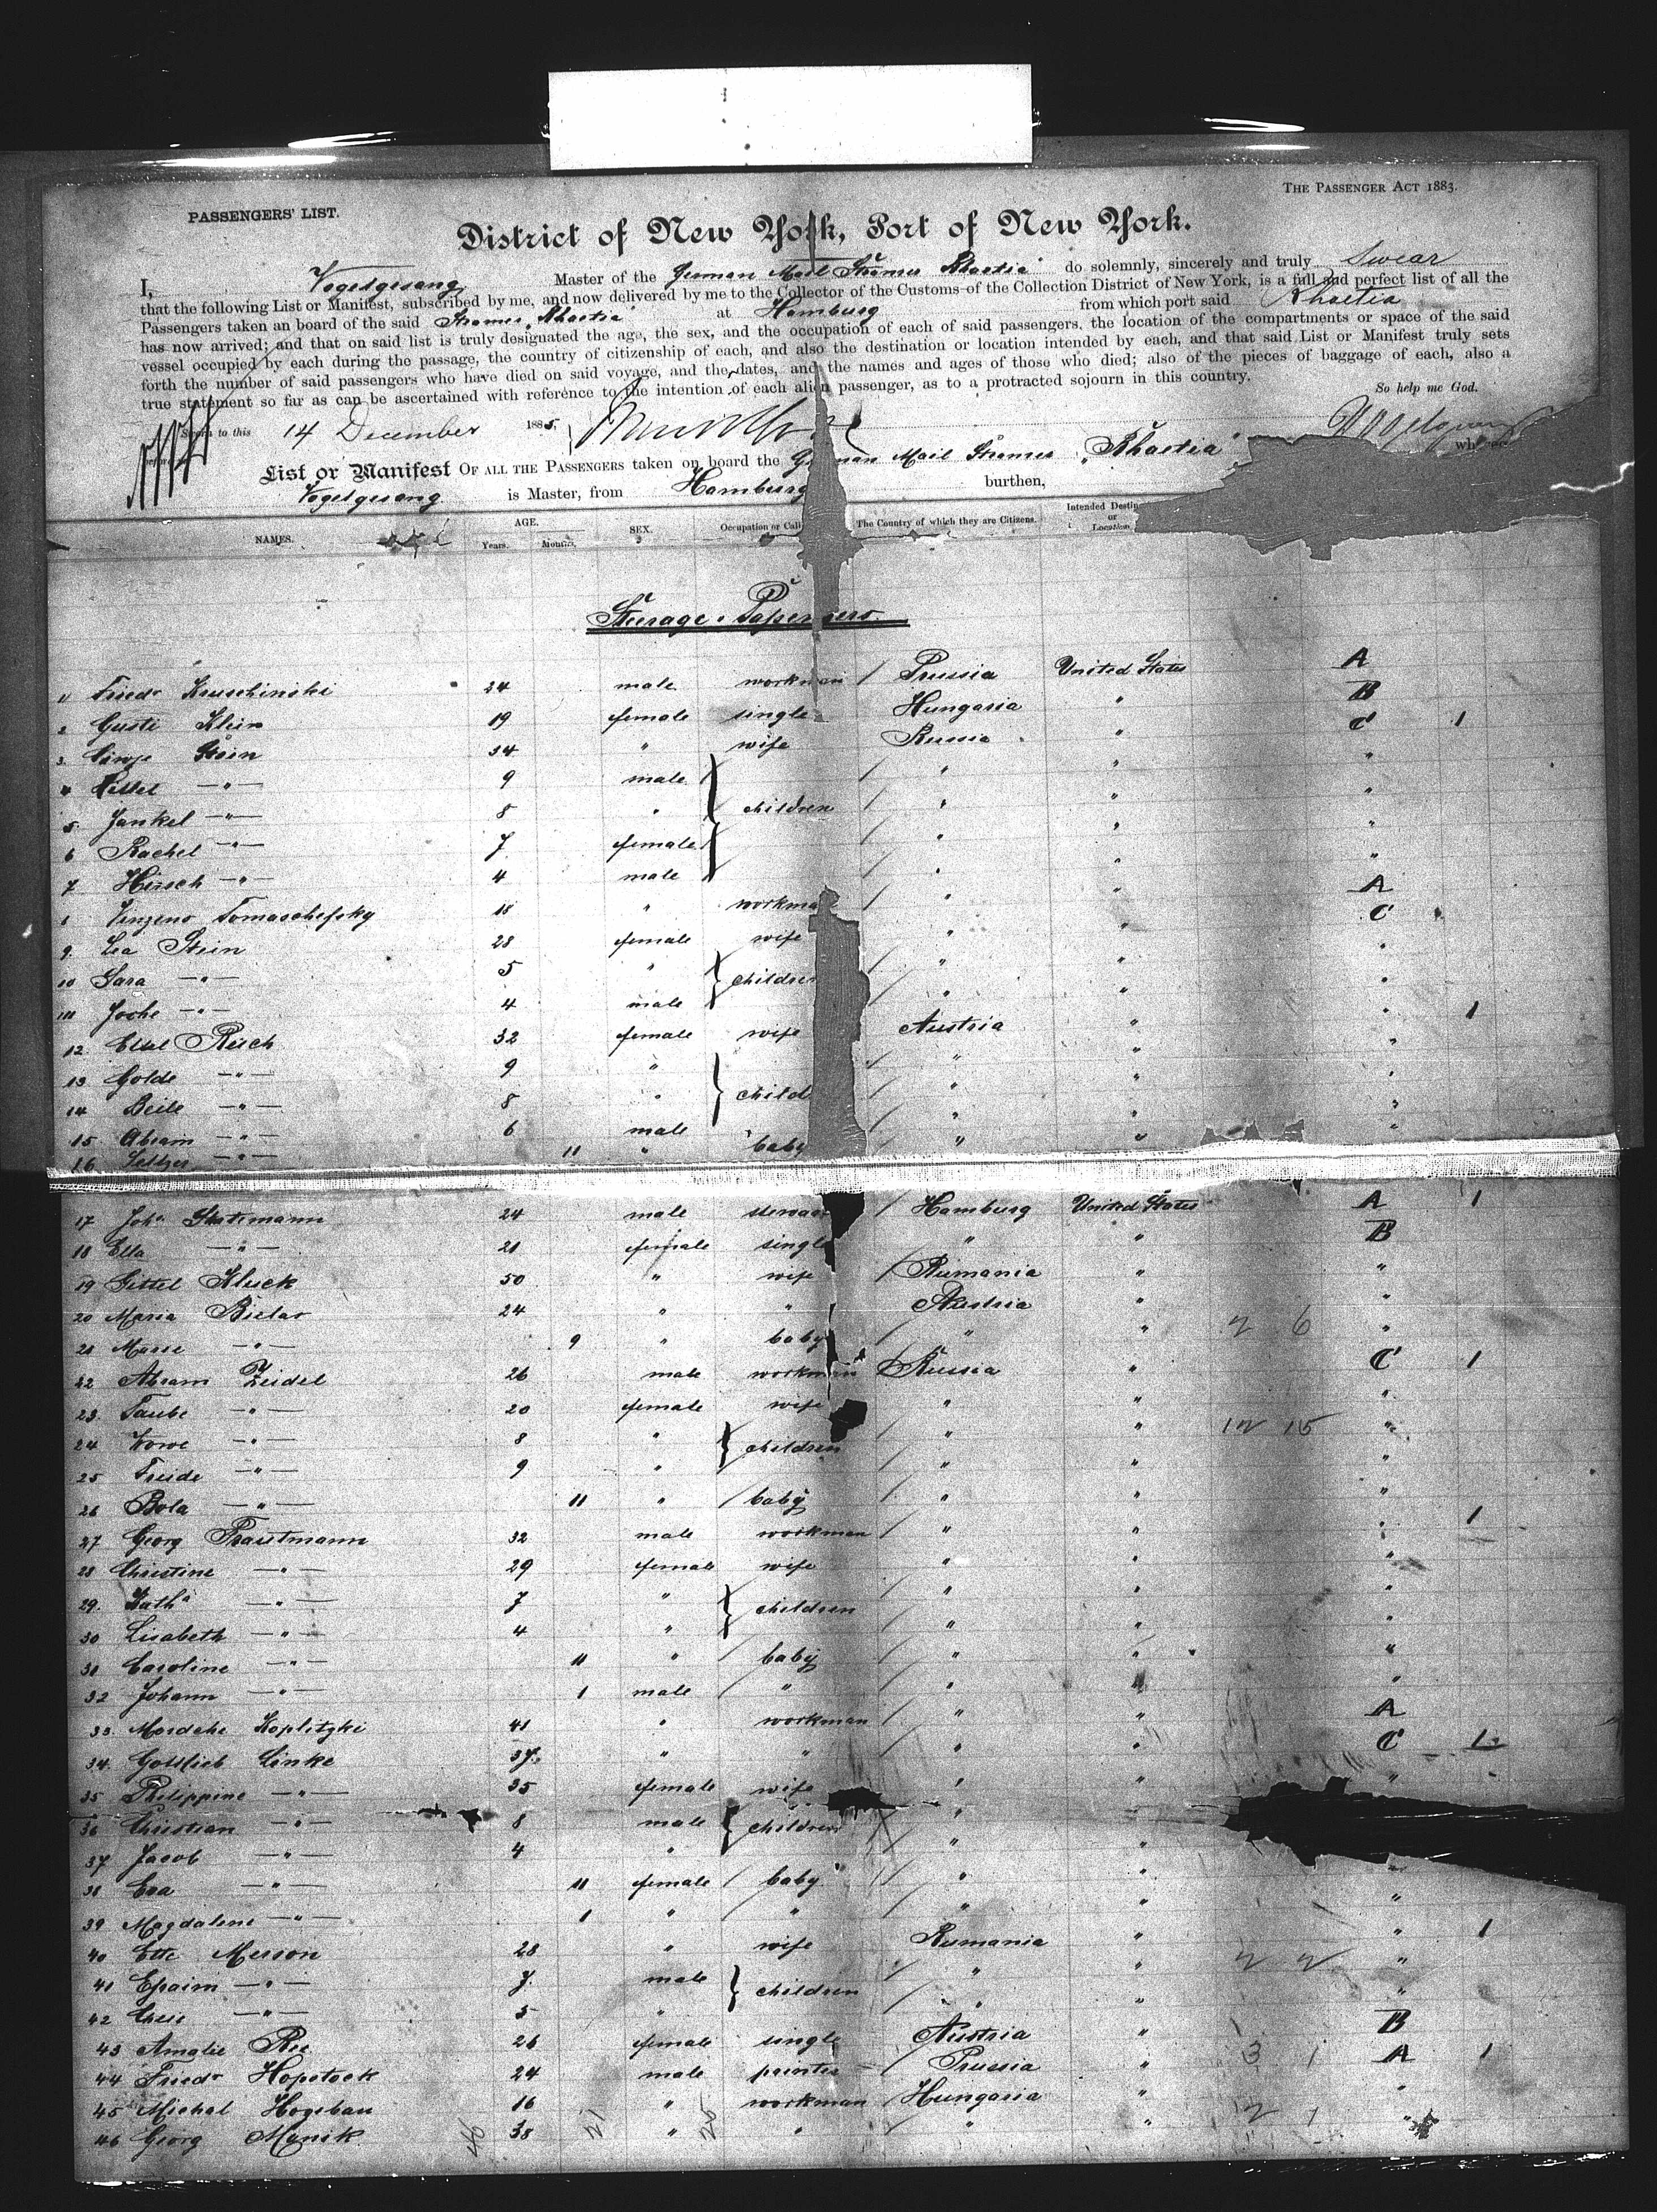 THE PASSENGER ACT 1883.
PASSENGERS' LIST.
District of New York, Port of New York.
I, Vogelgesang Master of the German Mail Steamer "Rhaetia" do solemnly, sincerely and truly swear
that the following List or Manifest, subscribed by me, and now delivered by me to the Collector of the Customs of the Collection District of New York, is a full and perfect list of all the
Passengers taken an board of the said Steamer "Rhaetia" at Hamburg from which port said Rhaetia
has now arrived; and that on said list is truly designated the age, the sex, and the occupation of each of said passengers, the location of the compartments or space of the said
vessel occupied by each during the passage, the country of citizenship of each, and also the destination or location intended by each, and that said List or Manifest truly sets
forth the number of said passengers who have died on said voyage, and the dates, and the names and ages of those who died; also of the pieces of baggage of each, also a
true statement so far as can be ascertained with reference to the intention of each alien passenger, as to a protracted sojourn in this country.
So help me God.
Sworn to this 14 December 1885. Vogelgesang
List or Manifest OF ALL THE PASSENGERS taken on board the German Mail Steamer "Rhaetia" whereof
Vogelgesang is Master, from Hamburg burthen,
NAMES. AGE. Years. Months. SEX. Occupation or Call The Country of which they are Citizens. Intended Destin or Location
Steerage Passengers.
1 Friedr Kruschinski 24 male workman / Prussia United States A
2 Gusti Klein 19 female single Hungaria " B
3 Stein 34 " wife Russia " C 1
4 —"— 9 male children / " " "
5 Jankel —"— 8 " / " " "
6 Rachel —"— 7 female / " " "
7 Hirsch —"— 4 male / " " "
8 Tomaschefsky 18 " workma / " " A
9 Lea Stein 28 female wife / " " C
10 Sara —"— 5 " children / " " "
11 Joche —"— 4 male / " " "
12 Reich 32 female wife Austria " " 1
13 Golde —"— 9 " child / " " "
14 Beile —"— 8 " / " " "
15 Abram —"— 6 male / " " "
16 —"— 11 " baby " " "
17 Joh. 24 male stewar / Hamburg United States A 1
18 Ella —"— 21 female single " " B
19 Gittel Kluck 50 " wife / Rumania " "
20 Maria Bielar 24 " " Austria " "
21 Marie —"— 9 " baby / " " 2 6 "
22 Abram Zeidel 26 male workman Russia " C 1
23 Taube —"— 20 female wife " " "
24 —"— 8 " children / " " 12 15 "
25 Freide —"— 9 " / " " "
26 Bola —"— 11 " / baby / " " "
27 Georg Trautmann 32 male workman / " " " 1
28 Christine —"— 29 female wife " " "
29 Kath. —"— 7 " children / " " "
30 Lisabeth —"— 4 " / " " "
31 Caroline —"— 11 " / baby / " " "
32 Johann —"— 1 male / " / " " "
33 Mordche Koplitzki 41 " workman / " " A
34 Gottlieb Linke 37 " " / " " C 1
35 Philippine —"— 35 female wife " " "
36 Christian —"— 8 male children "
37 Jacob —"— 4 " "
38 Eva —"— 11 female / baby / " " "
39 Magdalene —"— 1 " / " / " " "
40 Ette Merson 28 " wife Rumania " " 1
41 Epaim —"— 7 male children / " " 2 2 "
42 —"— 5 " / " " "
43 Amalie 26 female single Austria " B
44 Friedr Hopstock 24 male painter Prussia " 3 1 A 1
45 Michal Hogeban 16 " workman / Hungaria " "
46 Georg Manik 38 " " " " 2 1 "
46 21 25